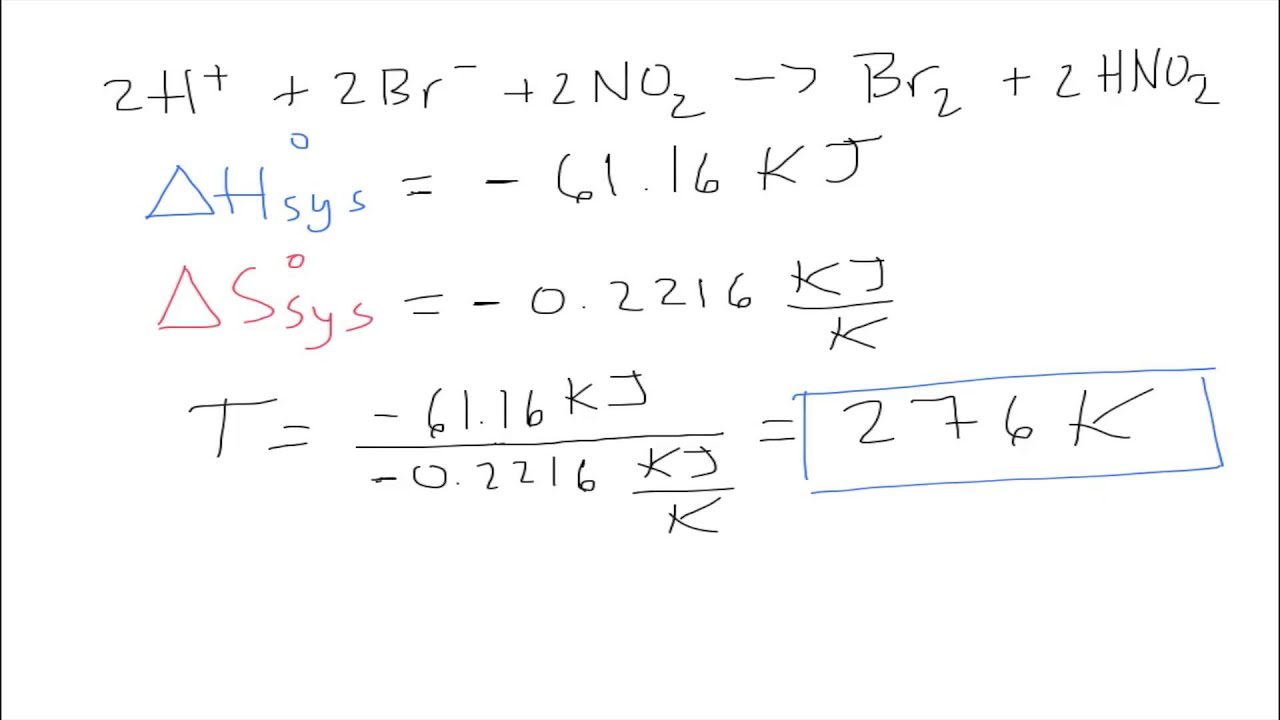 2H⁺ + 2Br⁻ + 2NO₂ → Br₂ + 2HNO₂
ΔH°sys = - 61.16 KJ
ΔS°sys = - 0.2216 KJ/K
T = -61.16 KJ / -0.2216 KJ/K = 276 K